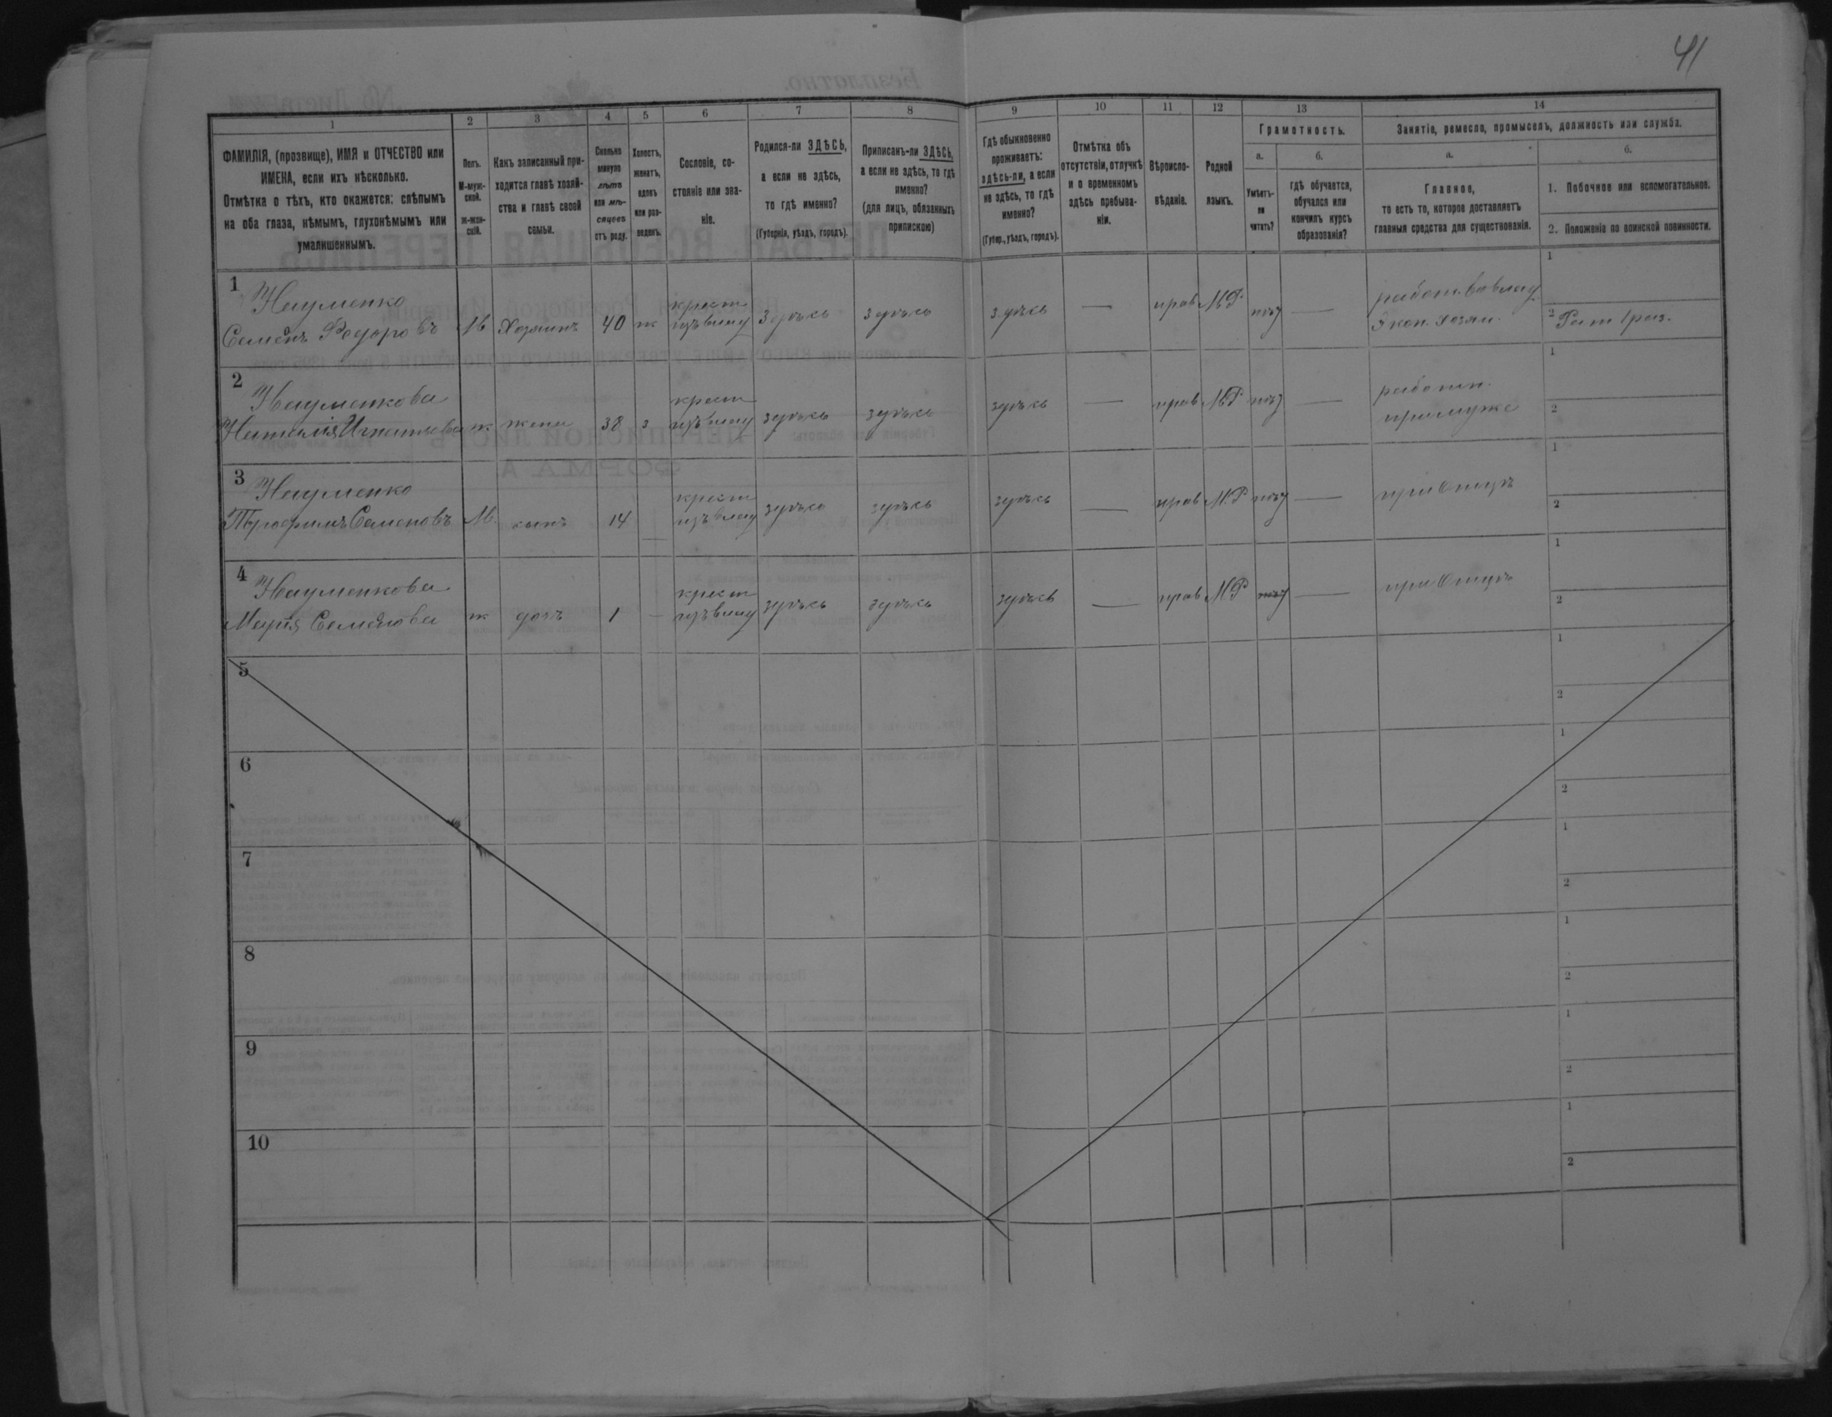 41
1
2
3
4
5
6
7
8
9
10
11
12
13
14
ФАМИЛІЯ, (прозвище), ИМЯ и ОТЧЕСТВО или
ИМЕНА, если ихъ нѣсколько.
Отмѣтка о тѣхъ, кто окажется: слѣпымъ
на оба глаза, нѣмымъ, глухонѣмымъ или
умалишеннымъ.
Полъ.
М-муж-
ской.
ж-жен-
скій.
Какъ записанный при-
ходится главѣ хозяй-
ства и главѣ своей
семьи.
Сколько
минуло
лѣтъ
или мѣ-
сяцевъ
отъ роду.
Холостъ,
женатъ,
вдовъ
или раз-
веденъ.
Сословіе, со-
стояніе или зва-
ніе.
Родился-ли ЗДѢСЬ,
а если не здѣсь,
то гдѣ именно?
(Губернія, уѣздъ, городъ).
Приписанъ-ли ЗДѢСЬ,
а если не здѣсь, то гдѣ
именно?
(для лицъ, обязанныхъ
припискою)
Гдѣ обыкновенно
проживаетъ:
здѣсь-ли, а если
не здѣсь, то гдѣ
именно?
(Губер., уѣздъ, городъ).
Отмѣтка объ
отсутствіи, отлучкѣ
и о временномъ
здѣсь пребыва-
ніи.
Вѣроиспо-
вѣданіе.
Родной
языкъ.
Грамотность.
а.
Умѣетъ-
ли
читать?
б.
гдѣ обучается,
обучался или
кончилъ курсъ
образованія?
Занятіе, ремесло, промыселъ, должность или служба.
а.
Главное,
то есть то, которое доставляетъ
главныя средства для существованія.
б.
1. Побочное или вспомогательное.
2. Положеніе по воинской повинности.
1 Науменко
Семенъ Федоровъ М Хозяинъ 40 ж крест изъ влад здѣсь здѣсь здѣсь — прав М.Р. — 1
2
2 Науменкова
Наталия Игнатьева ж жена 38 з крест изъ влад здѣсь здѣсь здѣсь — прав М.Р. — при мужѣ 1
2
3 Науменко
Трофимъ Семеновъ М. сынъ 14 — крест изъ влад здѣсь здѣсь здѣсь — прав М.Р — при отцѣ 1
2
4 Науменкова
Марія Семенова ж доч 1 — крест изъ влад здѣсь здѣсь здѣсь — прав М.Р — при отцѣ 1
2
5 1
2
6 1
2
7 1
2
8 1
2
9 1
2
10 1
2